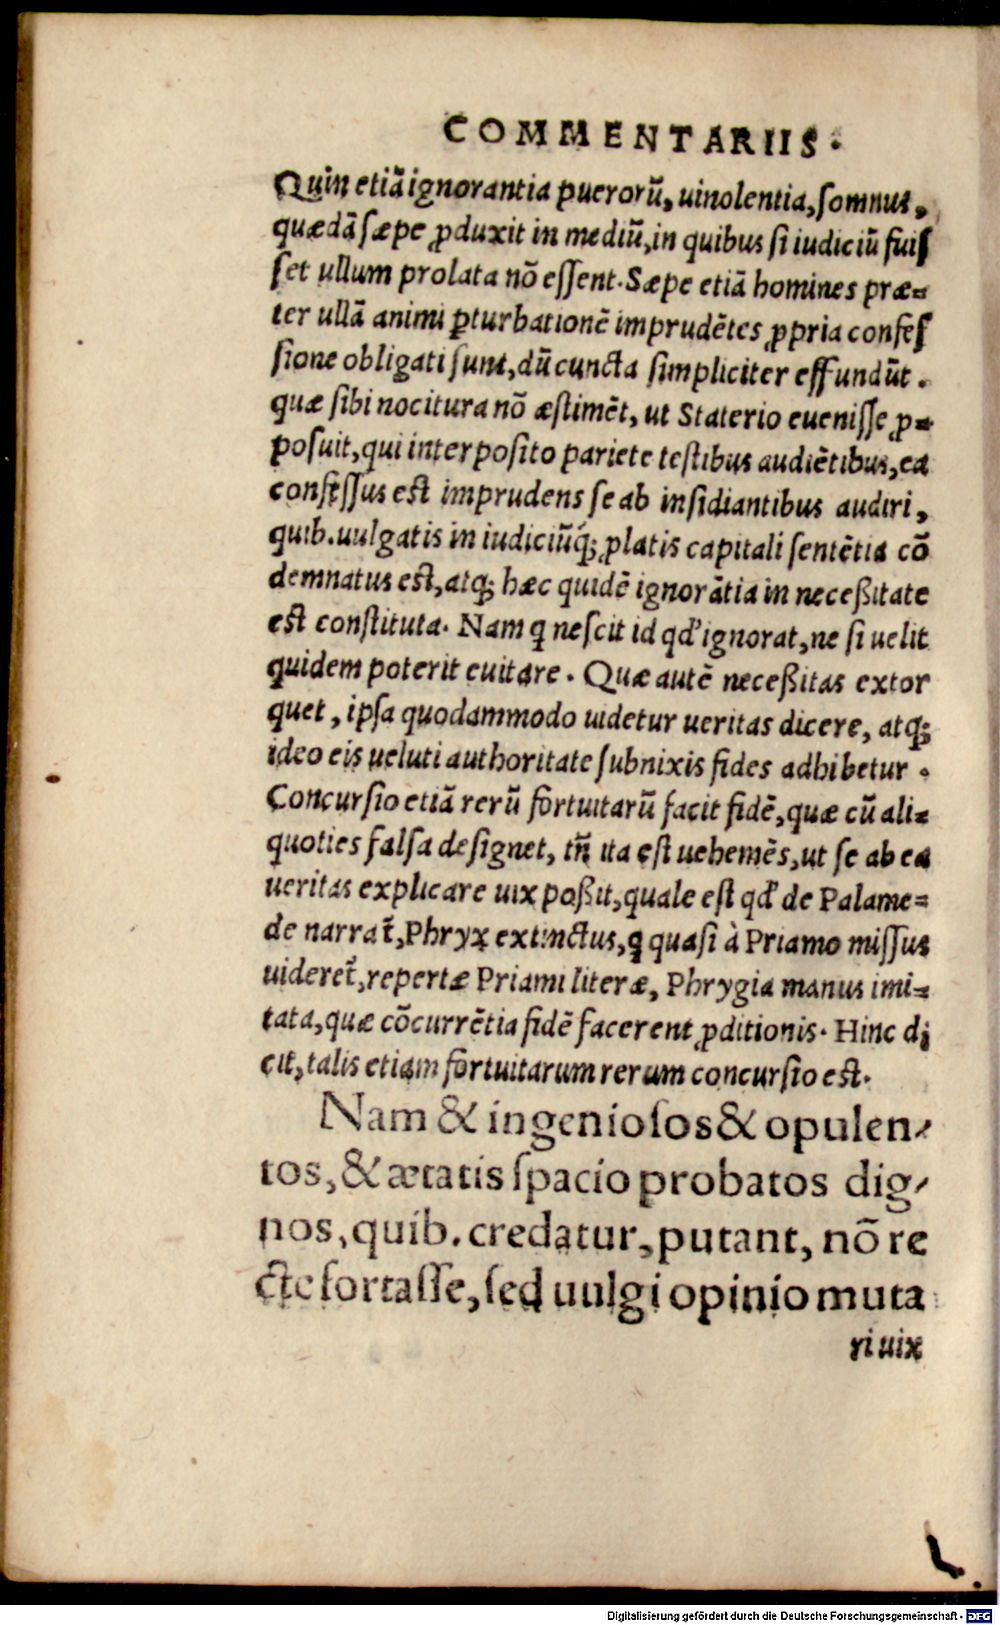 COMMENTARIIS.
Quin etiã ignorantia puerorũ, uinolentia, somnus,
quædã sæpe ꝓduxit in mediũ, in quibus si iudiciũ fuis
set ullum prolata nõ essent. Sæpe etiã homines præ=
ter ullã animi ꝑturbationẽ imprudẽtes ꝓpria confes
sione obligati sunt, dũ cuncta simpliciter effundũt.
quæ sibi nocitura nõ æstimẽt, ut Staterio euenisse ꝓ=
posuit, qui interposito pariete testibus audiẽtibus, ea
confessus est imprudens se ab insidiantibus audiri,
quib. uulgatis in iudiciũq́; ꝓlatis capitali sentẽtia cõ
demnatus est, atq; hæc quidẽ ignorãtia in neceßitate
est constituta. Nam q nescit id qd' ignorat, ne si uelit
quidem poterit euitare. Quæ autẽ neceßitas extor
quet, ipsa quodammodo uidetur ueritas dicere, atq;
ideo eis ueluti authoritate subnixis fides adhibetur.
Concursio etiã rerũ fortuitarũ facit fidẽ, quæ cũ ali=
quoties falsa designet, tñ ita est uehemẽs, ut se ab ea
ueritas explicare uix poßit, quale est qd' de Palame=
de narrat̃, Phryx extinctus, q quasi à Priamo missus
uideret̃, repertæ Priami literæ, Phrygia manus imi=
tata, quæ cõcurrẽtia fidẽ facerent ꝓditionis. Hinc di
cit, talis etiam fortuitarum rerum concursio est.
Nam & ingeniosos & opulen-
tos, & ætatis spacio probatos dig-
nos, quib. credatur, putant, nõ re
cte fortasse, sed uulgi opinio muta
ri uix
Digitalisierung gefördert durch die Deutsche Forschungsgemeinschaft - DFG